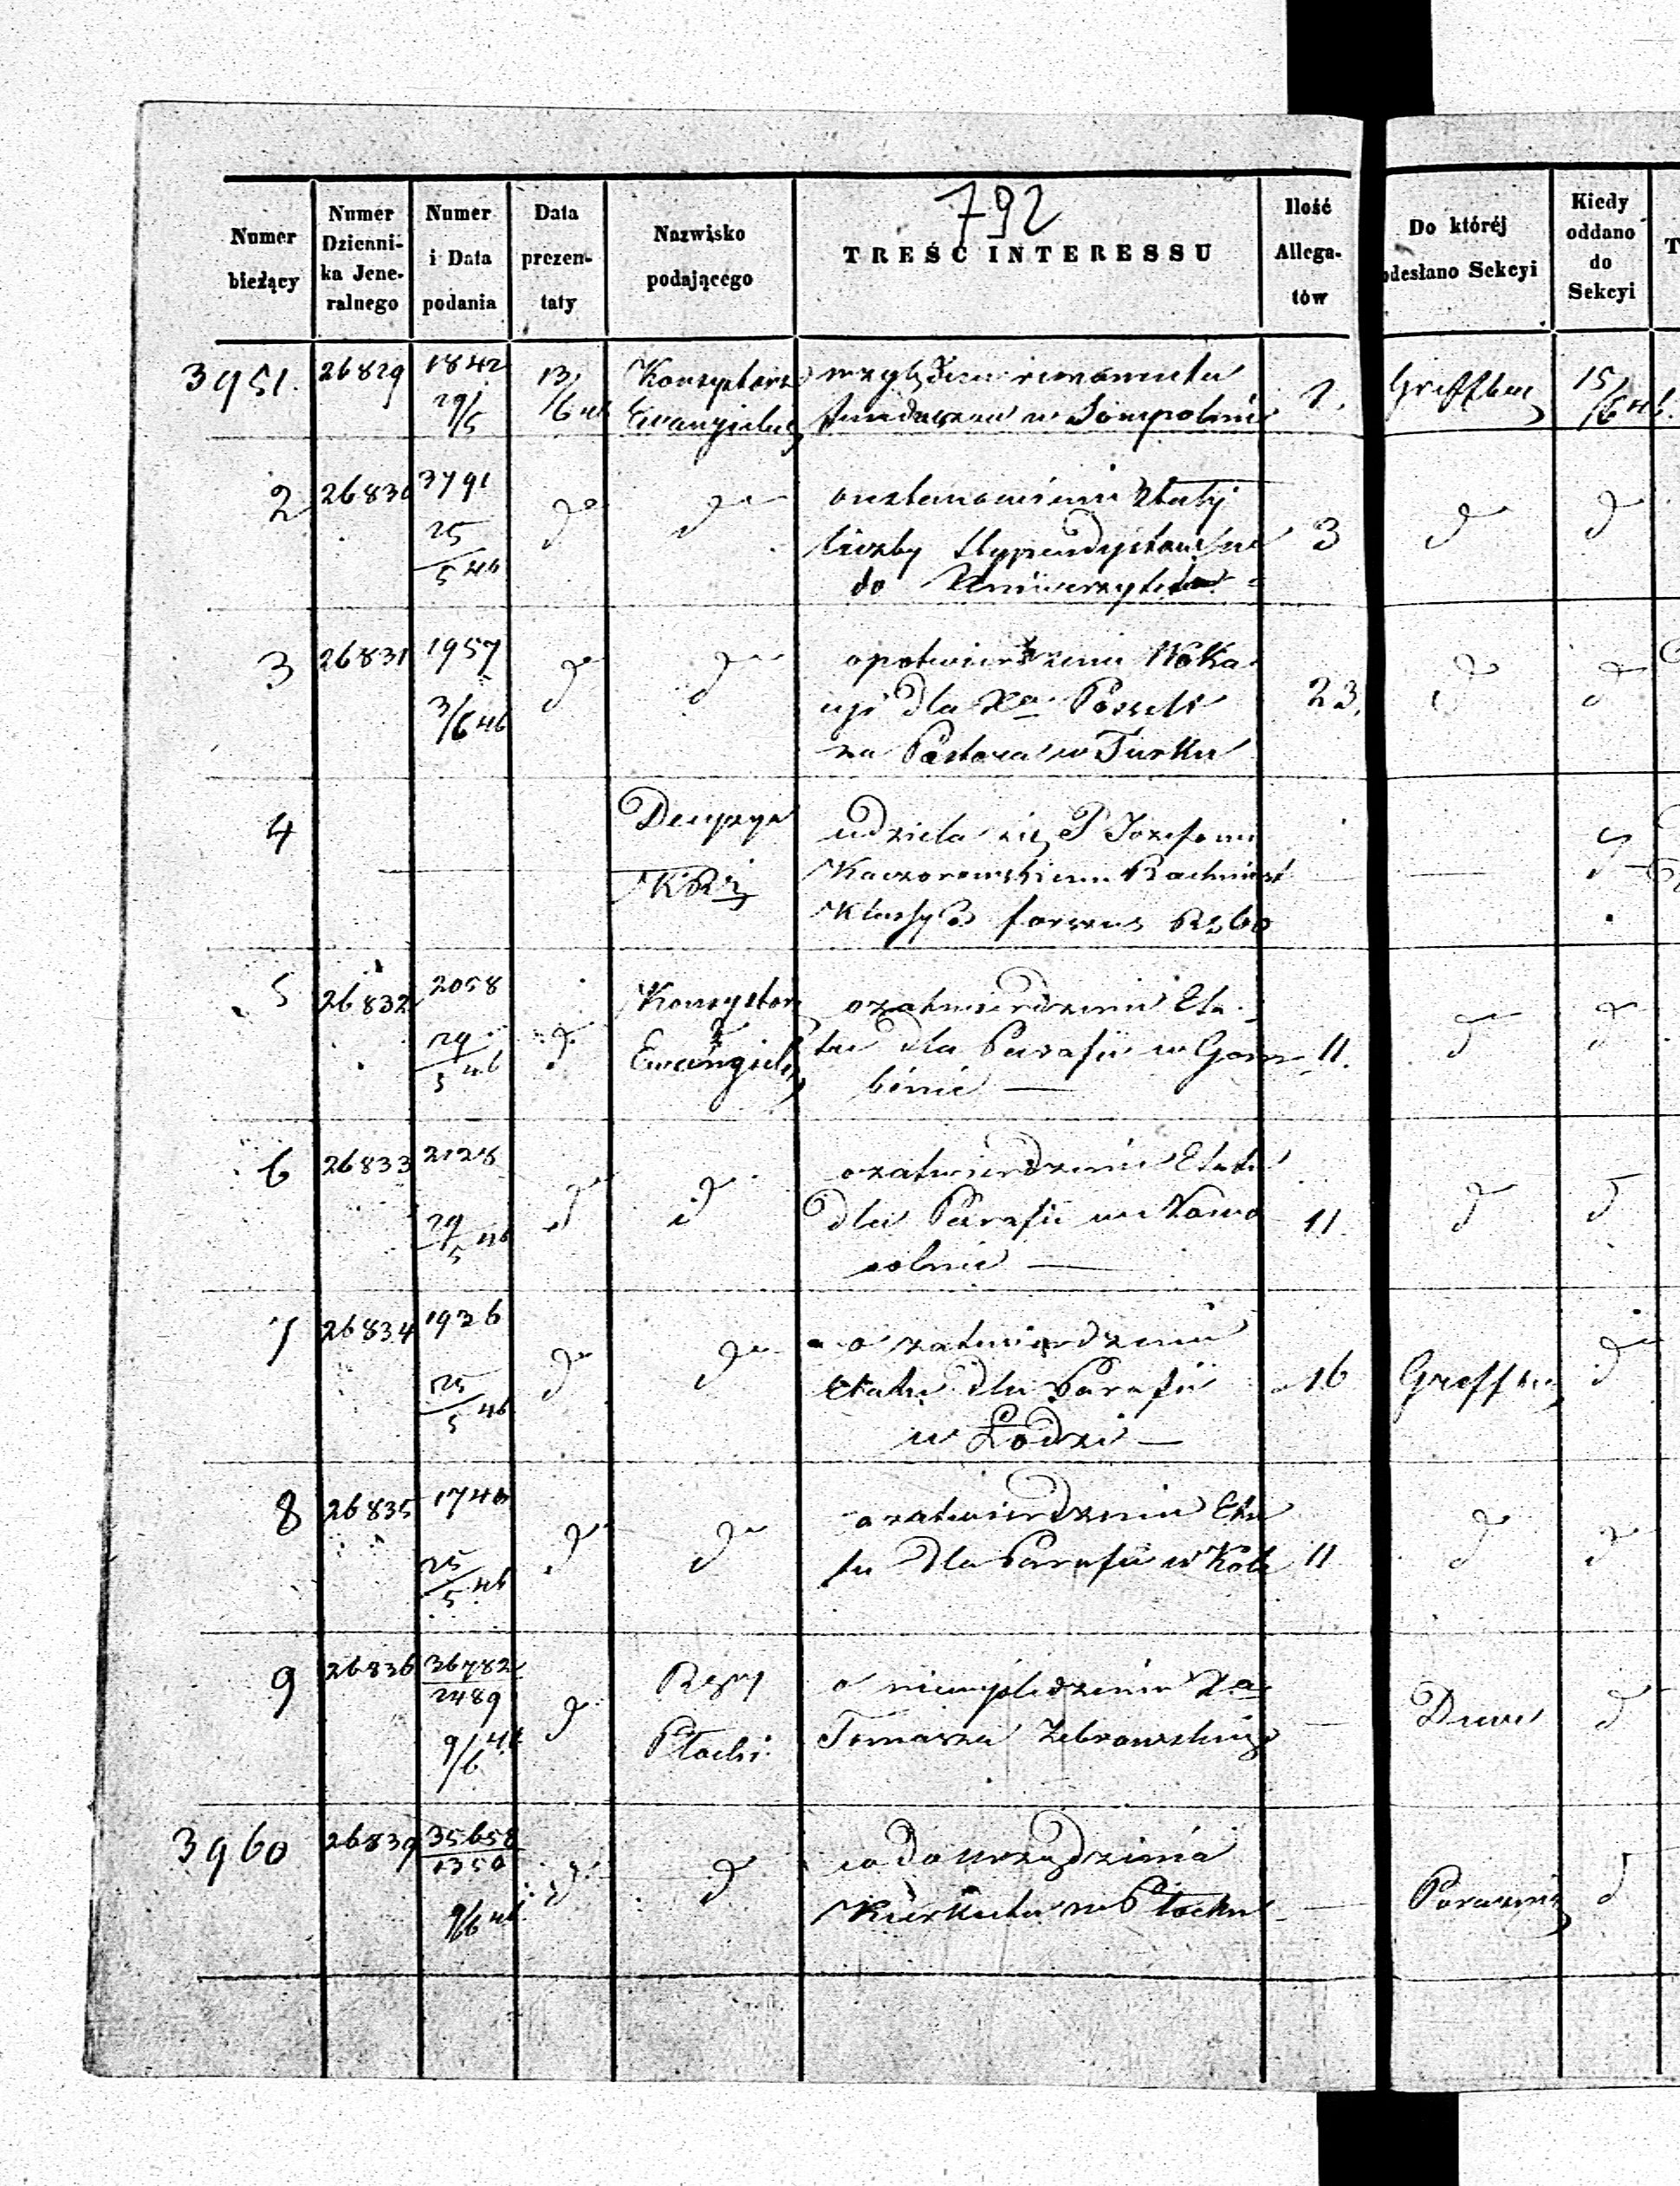 792
Numer bieżący
Numer Dzienni-ka Jene-ralnego
Numer i Data podania
Data prezen-taty
Nazwisko podającego
TREŚĆ INTERESSU
Ilość Allega-tów
Do któréj odesłano Sekcyi
Kiedy oddano do Sekcyi
3951. 26829 1842 29/5 13/6 46 Konsystorz Ewangielic
względem remanentu
funduszu w Sompolnie
1. 15/6 46.
2 26830 3791 25/5 46 do do
o ustanowieniu stałej
liczby Stypendystów
do Uniwersytetu
3 do do
3 26831 1957 3/6 46 do do
o potwierdzeniu Woka
cyi dla Xa
za Pastora w Turku
23. do do
4 Decyzya
udziela się P Józefowi
Kaczorowskiemu
Klassy 2 forszus Rs 60
5 26832 2058 29/5 46 do Konsystorz Ewangielic
o zatwierdzenie Eta-
tu dla Parafii w Gom-
binie —
11. do do
6 26833 2128 29/5 46 do do
o zatwierdzenie Etatu
dla Parafii w Nowo
solnie —
11. do do
7 26834 1926 25/5 46 do do
o zatwierdzenie
Etatu dla Parafii
w Łodzi —
16 do
8 26835 1740 25/5 46 do do
o zatwierdzenie Eta
tu dla Parafii w Kole
11 do do
9 26836 36782/2489 9/6 46 do Rząd Płocki
o Xa
Tomasza Żebrowskiego
— do
3960 26839 35658/1350 9/6 46 do do
co do urządzenia
Kierkutu w Płocku
— do